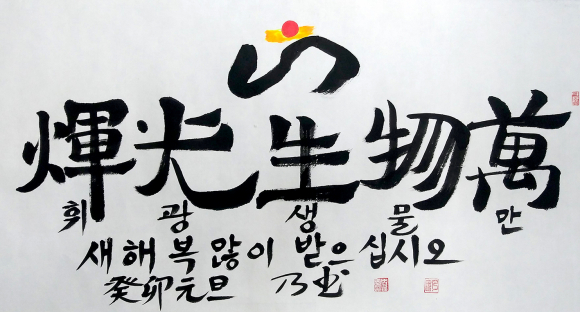 萬物生光煇
만물생광휘
새해 복 많이 받으십시오
癸卯元旦